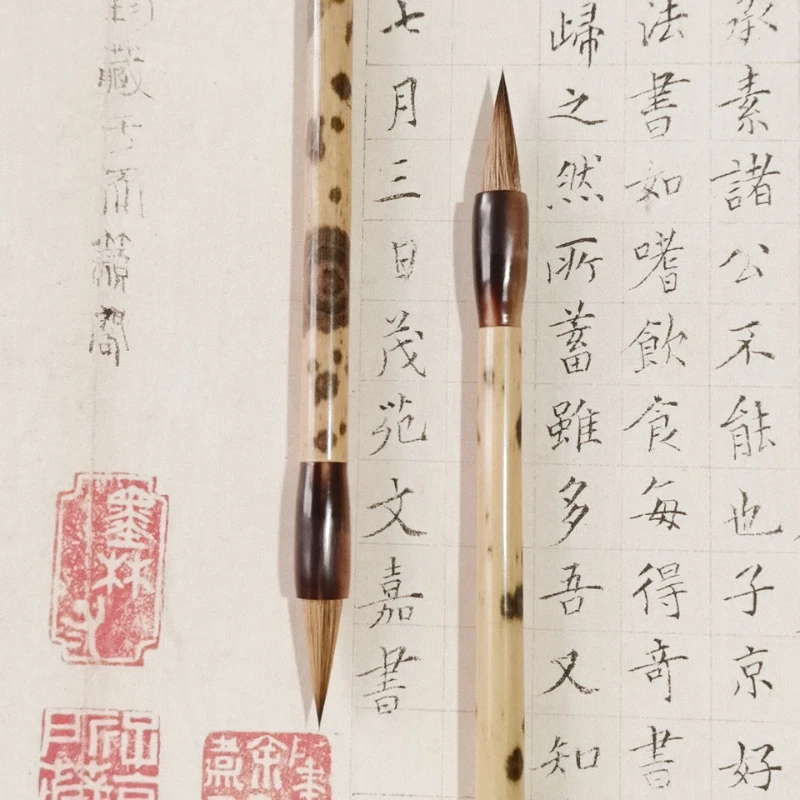 承素諸公不能也子京好
法書如嗜飲食每得奇書
歸之然所蓄雖多吾又知
七月三日茂苑文嘉書
藏
墨林